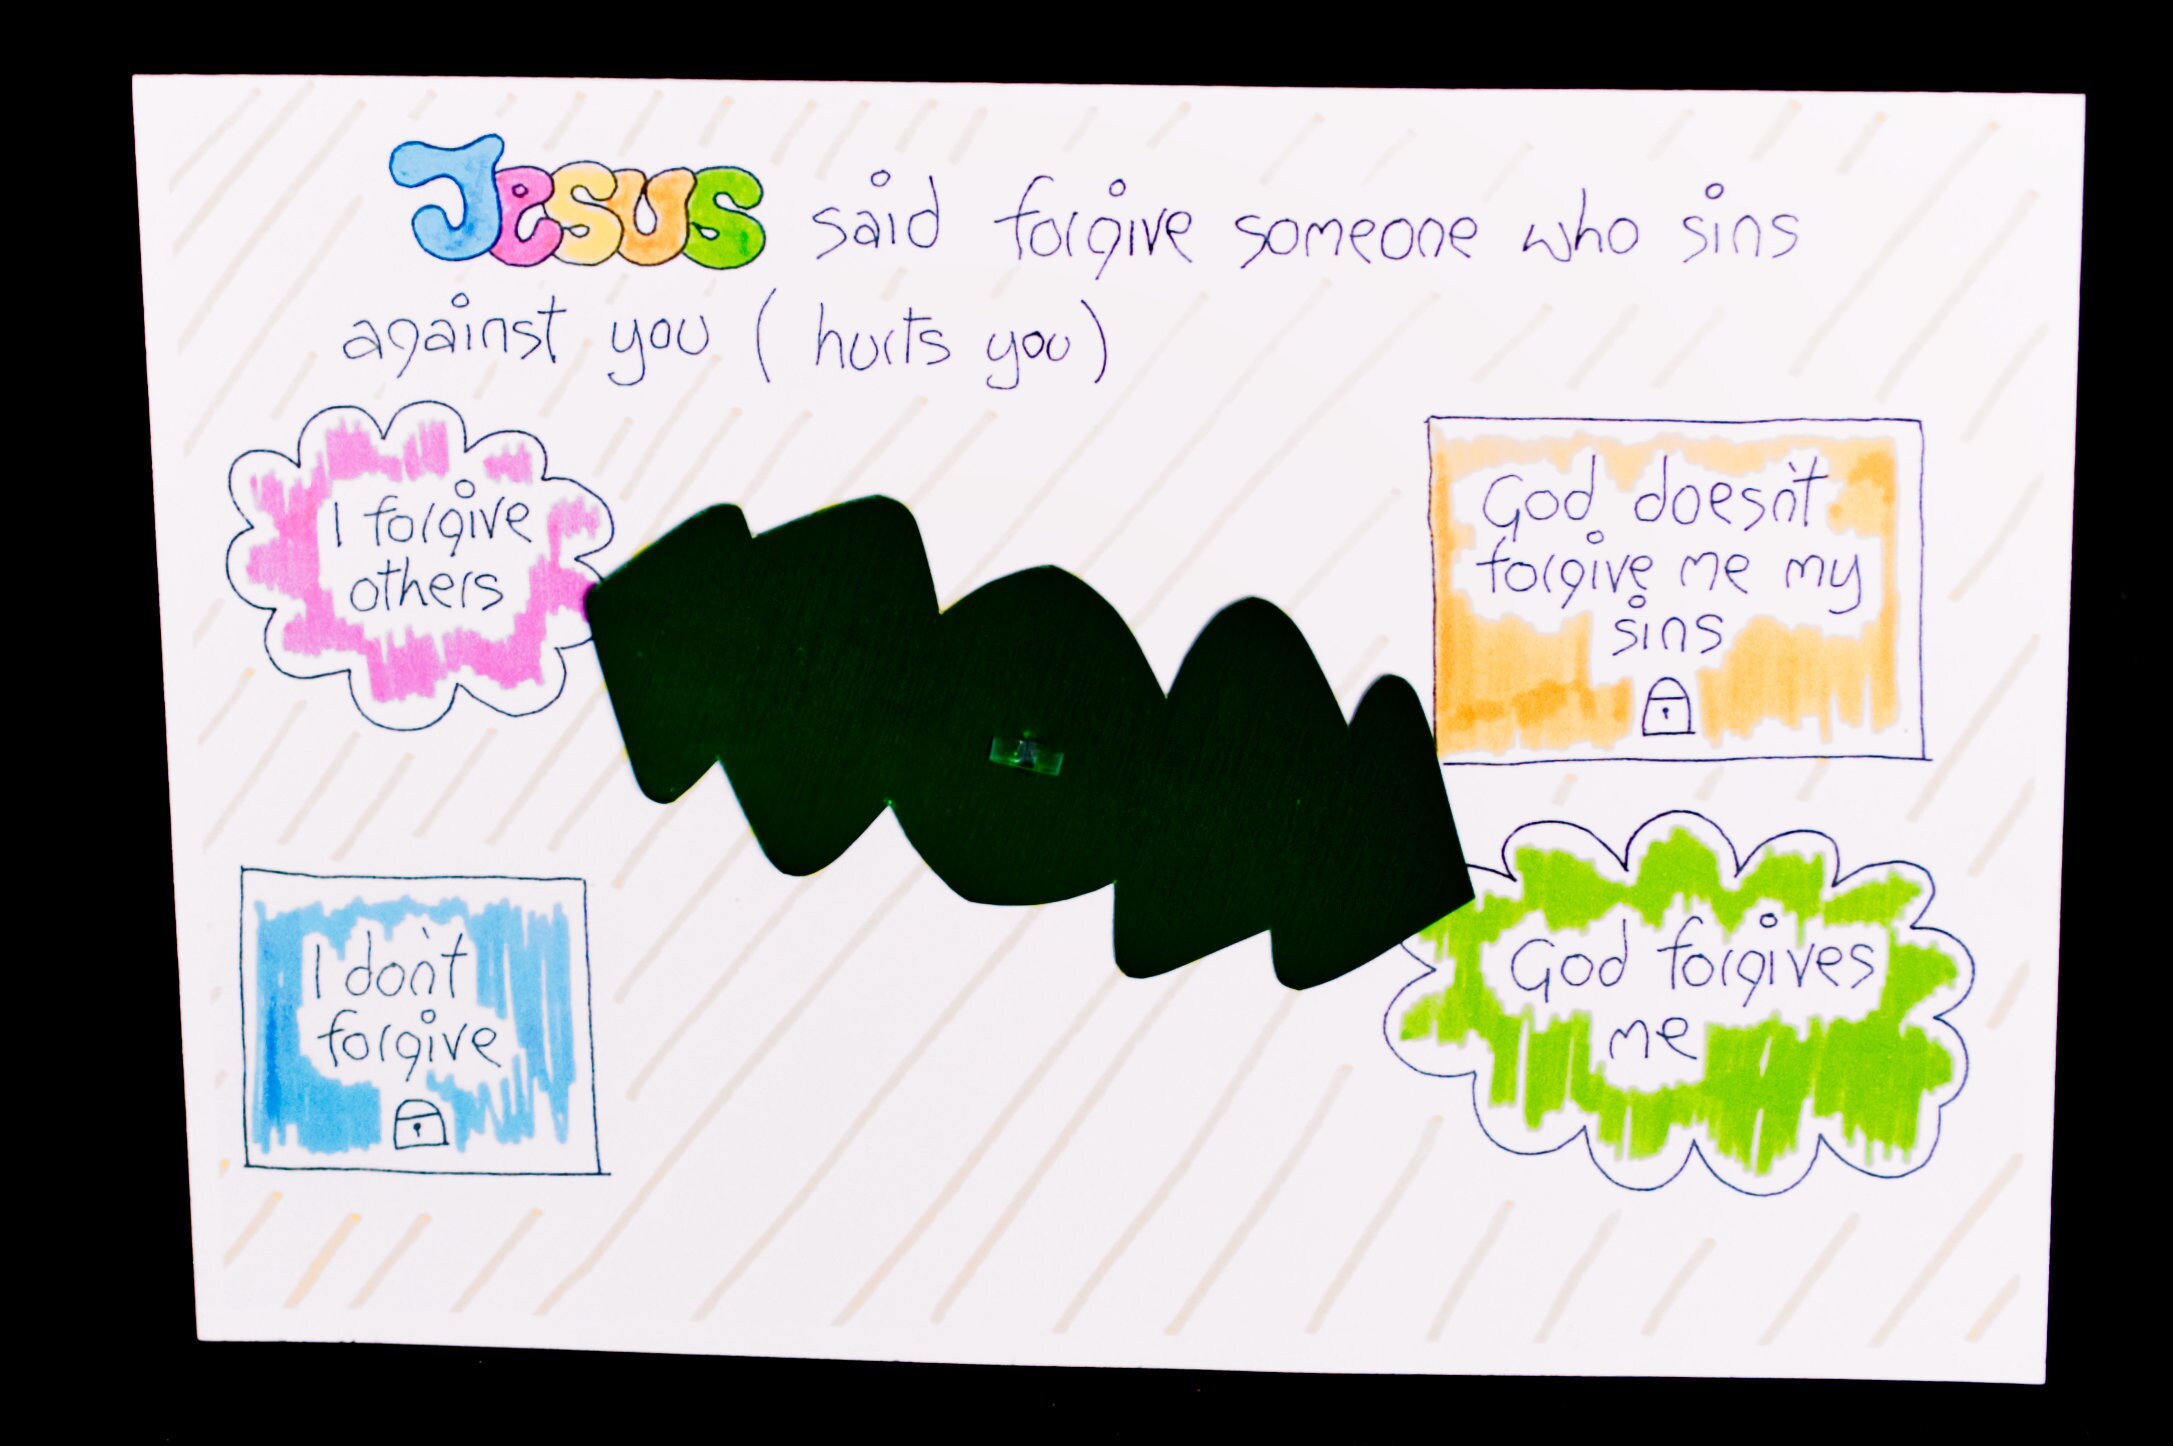 Jesus said forgive someone who sins
against you (hurts you)
I forgive
others
God doesn't
forgive me my
sins
I don't
forgive
God forgives
me